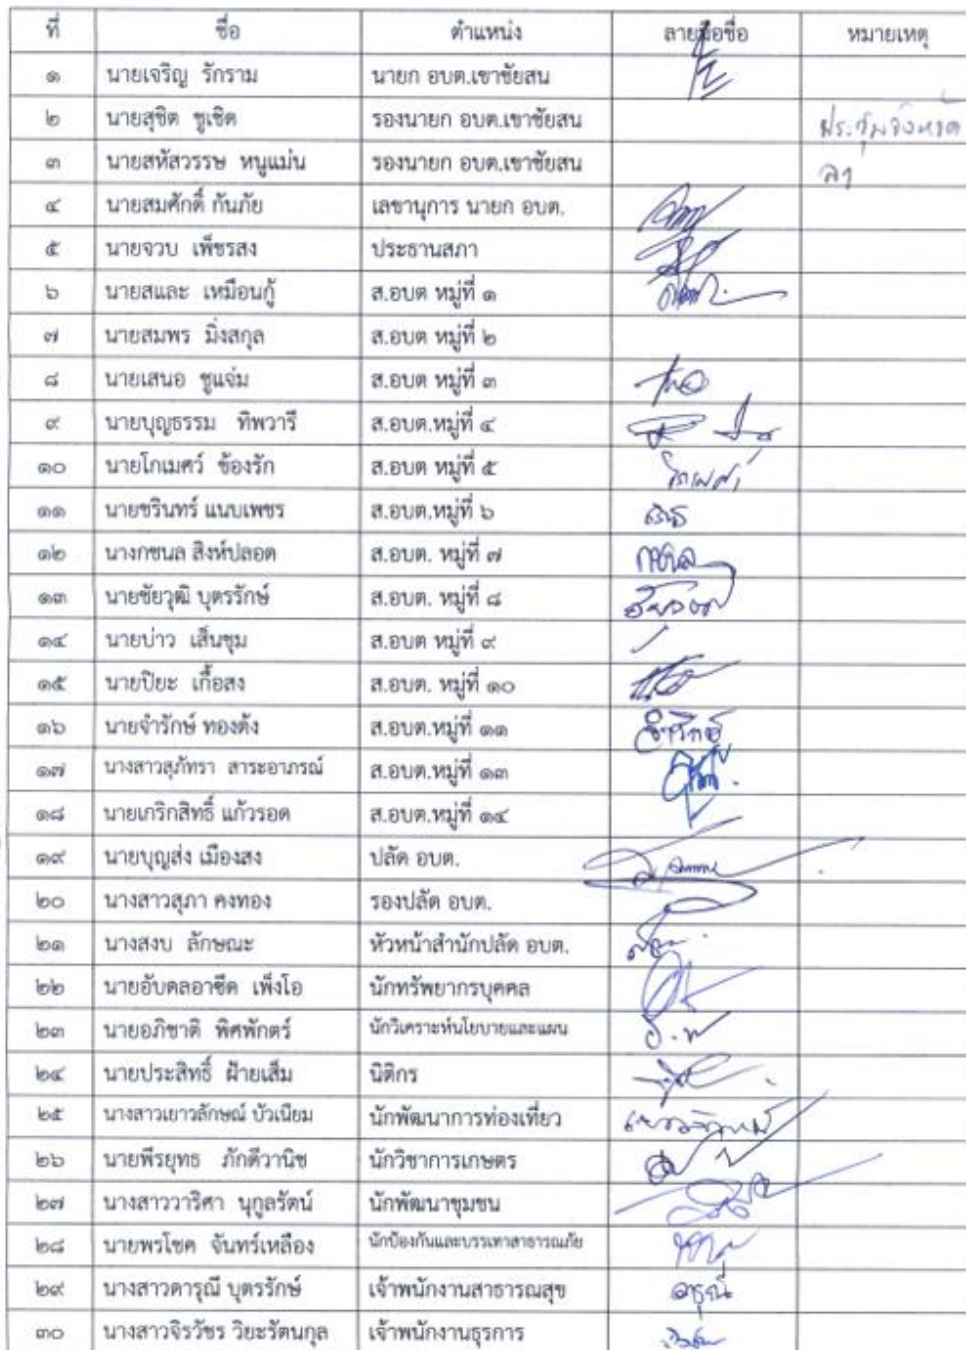 ที่ ชื่อ ตำแหน่ง ลายมือชื่อ หมายเหตุ
๑ นายเจริญ รักราม นายก อบต.เขาชัยสน
๒ นายสุชิต ชูเชิด รองนายก อบต.เขาชัยสน ประชุมจังหวัด
๓ นายสหัสวรรษ หนูแม่น รองนายก อบต.เขาชัยสน ลา
๔ นายสมศักดิ์ กันภัย เลขานุการ นายก อบต.
๕ นายจวบ เพ็ชรสง ประธานสภา
๖ นายสและ เหมือนกู้ ส.อบต หมู่ที่ ๑
๗ นายสมพร มิ่งสกุล ส.อบต หมู่ที่ ๒
๘ นายเสนอ ชูแจ่ม ส.อบต หมู่ที่ ๓
๙ นายบุญธรรม ทิพวารี ส.อบต.หมู่ที่ ๔
๑๐ นายโกเมศว์ ช้องรัก ส.อบต หมู่ที่ ๕ โกเมศว์
๑๑ นายชรินทร์ แนบเพชร ส.อบต.หมู่ที่ ๖
๑๒ นางกชนล สิงห์ปลอด ส.อบต. หมู่ที่ ๗ กชนล
๑๓ นายชัยวุฒิ บุตรรักษ์ ส.อบต. หมู่ที่ ๘ ชัยวุฒิ
๑๔ นายบ่าว เส็นชุม ส.อบต หมู่ที่ ๙
๑๕ นายปิยะ เกื้อสง ส.อบต. หมู่ที่ ๑๐
๑๖ นายจำรักษ์ ทองตัง ส.อบต.หมู่ที่ ๑๑ จำรักษ์
๑๗ นางสาวสุภัทรา สาระอาภรณ์ ส.อบต.หมู่ที่ ๑๓
๑๘ นายเกริกสิทธิ์ แก้วรอด ส.อบต.หมู่ที่ ๑๔
๑๙ นายบุญส่ง เมืองสง ปลัด อบต.
๒๐ นางสาวสุภา คงทอง รองปลัด อบต.
๒๑ นางสงบ ลักษณะ หัวหน้าสำนักปลัด อบต.
๒๒ นายอับดลอาซีด เพ็งโอ นักทรัพยากรบุคคล
๒๓ นายอภิชาติ พิศพักตร์ นักวิเคราะห์นโยบายและแผน อ.พ
๒๔ นายประสิทธิ์ ฝ้ายเส็ม นิติกร
๒๕ นางสาวเยาวลักษณ์ บัวเนียม นักพัฒนาการท่องเที่ยว เยาวลักษณ์
๒๖ นายพีรยุทธ ภักดีวานิช นักวิชาการเกษตร
๒๗ นางสาววาริศา นุกูลรัตน์ นักพัฒนาชุมชน
๒๘ นายพรโชค จันทร์เหลือง นักป้องกันและบรรเทาสาธารณภัย
๒๙ นางสาวดารุณี บุตรรักษ์ เจ้าพนักงานสาธารณสุข ดารุณี
๓๐ นางสาวจิรวัชร วิยะรัตนกุล เจ้าพนักงานธุรการ